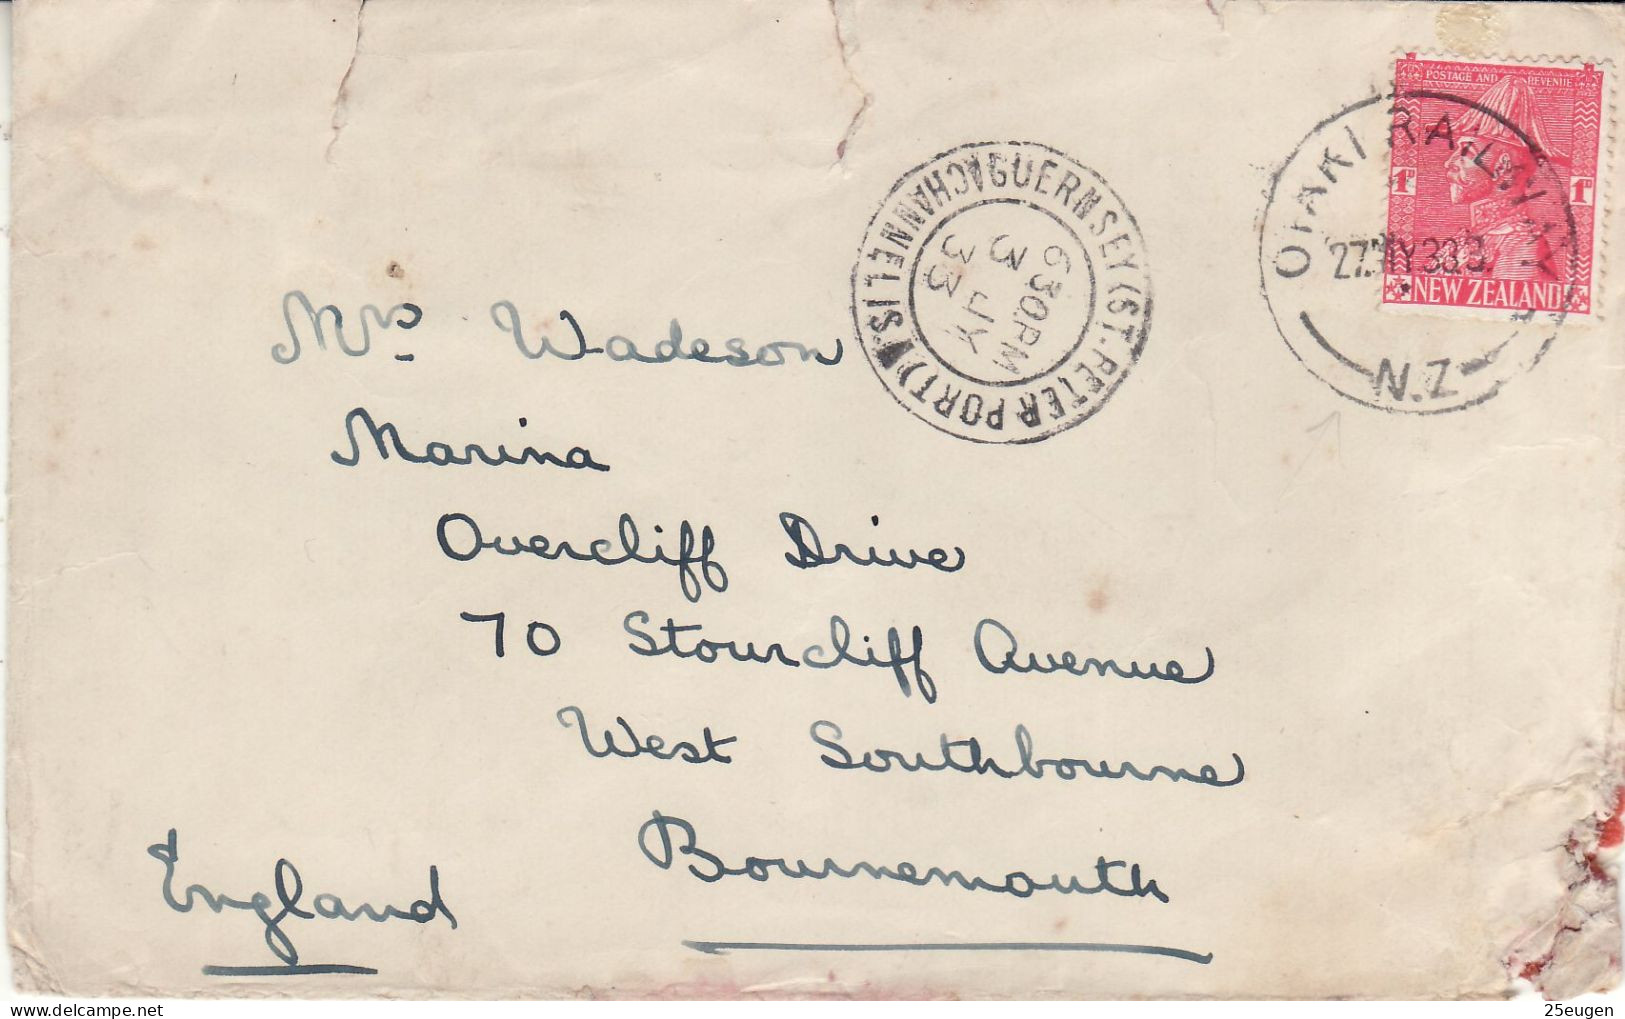 POSTAGE AND REVENUE
1D 1D
NEW ZEALAND
OTAKI RAILWAY
27 MY 33
N.Z
GUERNSEY (ST. PETER PORT) CHANNEL IS.
6 30 PM
3 JY
33
Mrs Wadeson
Marina
Overcliff Drive
70 Stourcliff Avenue
West Southbourne
Bournemouth
England
25eugen